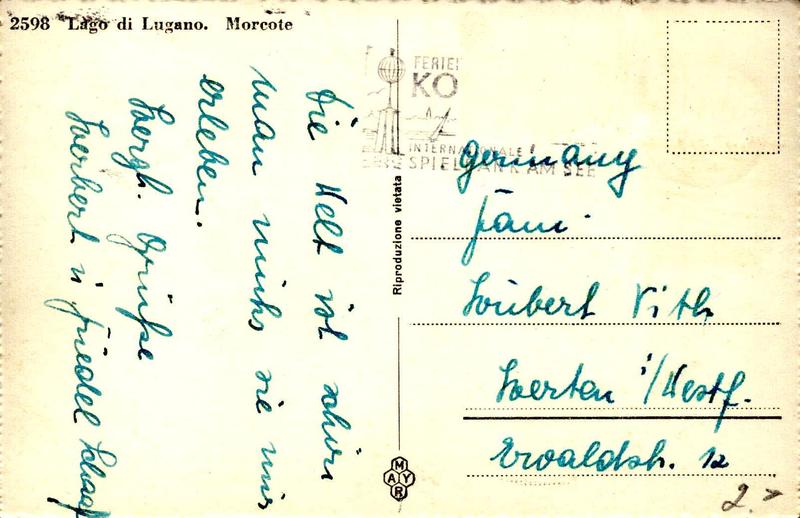 2598 Lago di Lugano. Morcote
Die Welt ist schön
man muhs sie nur
erleben.
Herzl. Grüße
Herbert u. Friedel Schaaf
Riproduzione vietata
MAYR
FERIEN
KO
INTERNATIONALE
SPIELBANK AM SEE
Germany
Fam.
Hubert Vith
Herten i/Westf.
Ewaldstr. 12
2.-